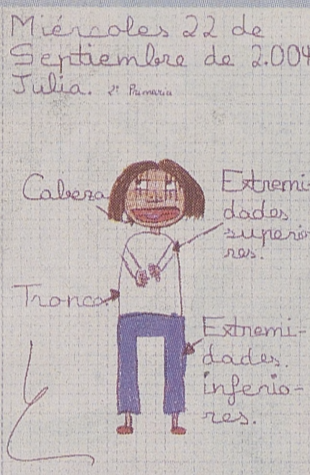 Miércoles 22 de
Septiembre de 2.004
Julia. 2º Primaria
Cabeza
Extremi-
dades
superio-
res.
Tronco.
Extremi-
dades.
inferio-
res.